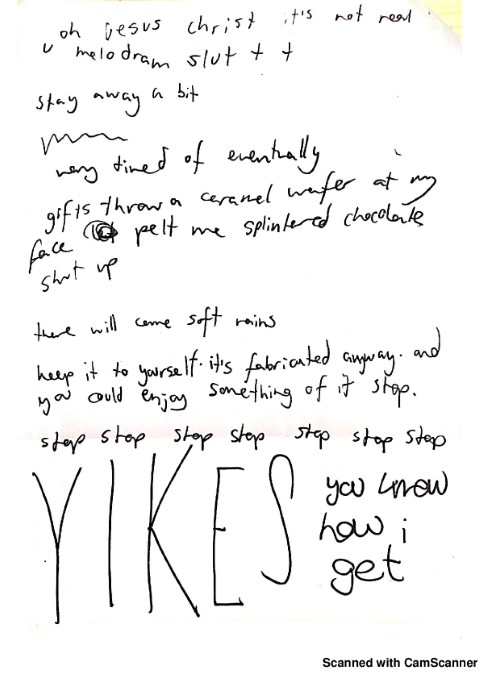 oh jesus christ it's not real
u melodram slut + +
stay away a bit
very tired of eventually
gifts throw a caramel wafer at my
face pelt me splintered chocolate
shut up
there will come soft rains
keep it to yourself. it's fabricated anyway. and
you could enjoy something of it stop.
stop stop stop stop stop stop stop
YIKES
you know
how i
get
Scanned with CamScanner